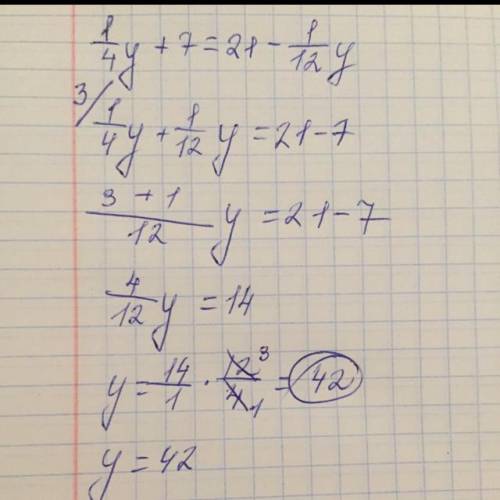 1/4 y + 7 = 21 - 1/12 y
3/ 1/4 y + 1/12 y = 21 - 7
3 + 1 / 12 y = 21 - 7
4/12 y = 14
y = 14/1 · 12 3 / 4 1 = 42
y = 42